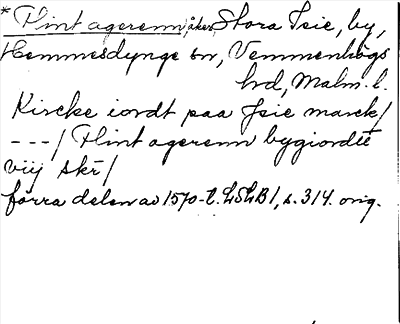 *Flint agerenn, åker, Stora Isie, by,
Hemmesdynge sn, Vemmenhögs
hrd, Malm. l.
Kircke iordt paa Isie marck/
---/ Flint agerenn bygiordtt
viij skr̄/
förra delen av 1570-t. LSLB 1, s. 314. orig.